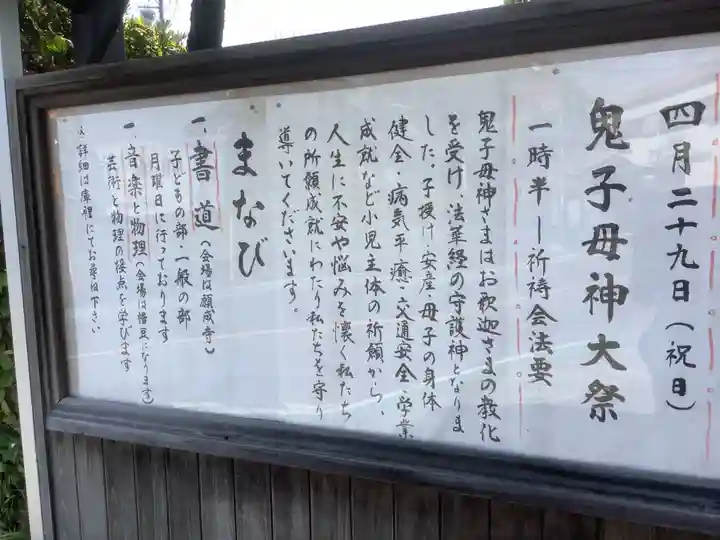 四月二十九日（祝日）
鬼子母神大祭
一時半ー祈祷会法要
鬼子母神さまはお釈迦さまの教化
を受け、法華経の守護神となりま
した。子授け・安産・母子の身体
健全・病気平癒・交通安全・学業
成就など小児主体の祈願から、
人生に不安や悩みを懐く私たち
の所願成就にわたり私たちを守り
導いてくださいます。
まなび
一、書道（会場は願成寺）
子どもの部 一般の部
月曜日に行っております
一、音楽と物理（会場は幡豆になります）
芸術と物理の接点を学びます
※詳細は庫裡にてお尋ね下さい